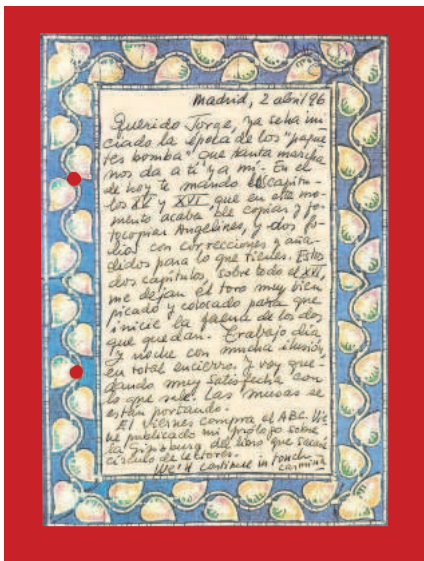 Madrid, 2 abril 96
Querido Jorge, ya se ha ini
ciado la época de los "paque
tes bomba" que tanta marcha
nos da a ti y a mí. En el
de hoy te mando los capítu-
los XV y XVI que en este mo-
mento acaba de copiar y fo-
tocopiar Angelines, y dos fo-
lios con correcciones y aña-
didos para lo que tienes. Estos
dos capítulos, sobre todo el XVI,
me dejan el toro muy bien
picado y colocado para que
inicie la faena de los dos
que quedan. Trabajo día
y noche con mucha ilusión,
en total encierro. Y voy que-
dando muy satisfecha con
lo que sale. Las musas se
están portando.
El viernes compra el ABC. Vie
ne publicado mi prólogo sobre
la Ginzburg del libro que sacará
Círculo de Lectores.
We'll continue in touch
Carmiña